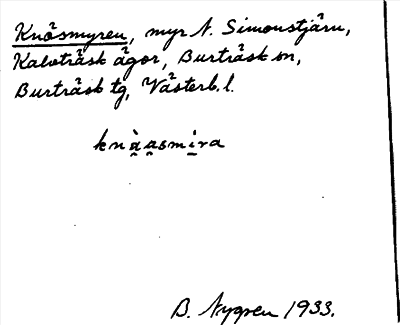 Knösmyren, myr N. Simonstjärn,
Kalvträsk ägor, Burträsk sn,
Burträsk tg, Västerb. l.
knàasmira
B. Nygren 1933.